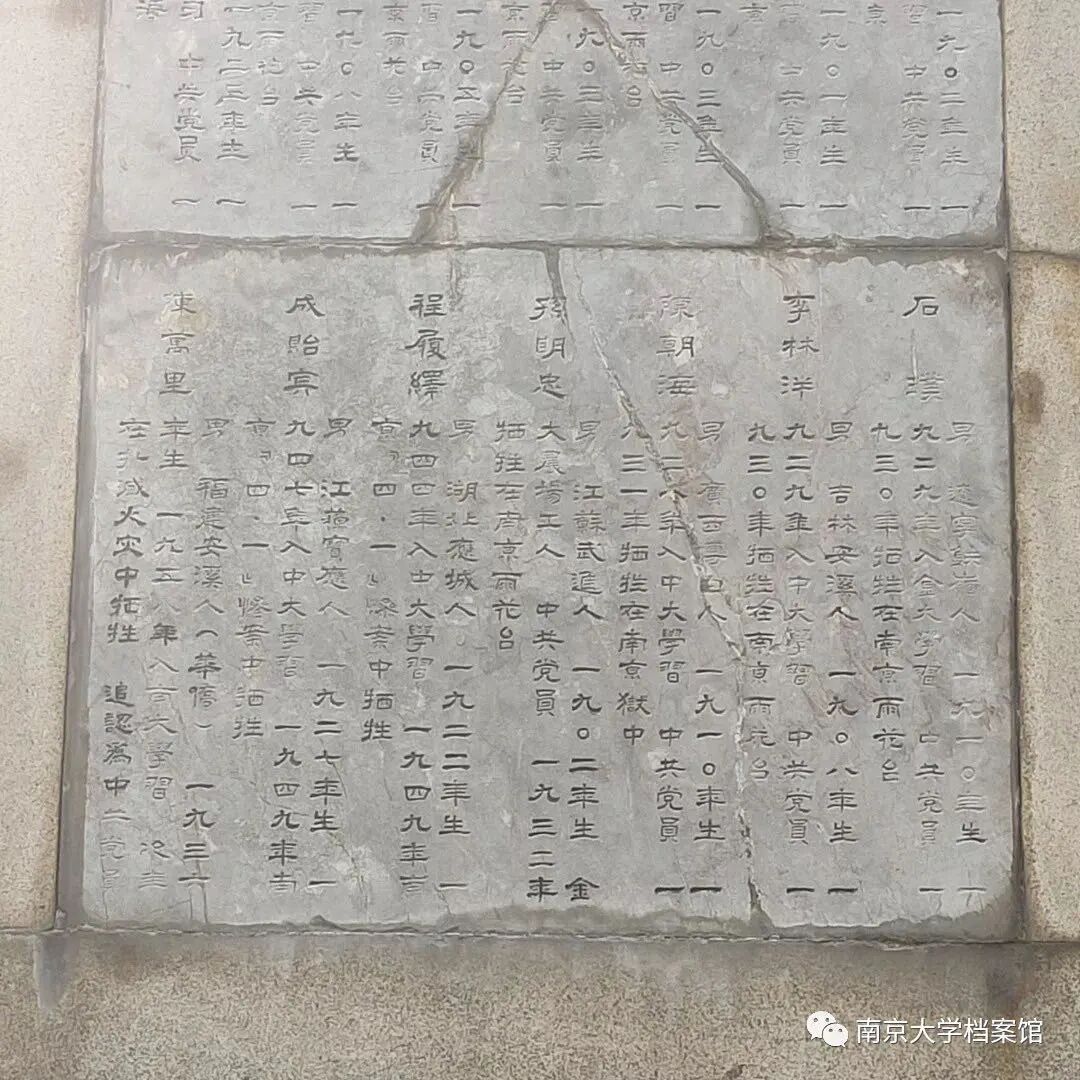 一九〇二年生 一
習 中共党員 一
京
一九〇一年生 一
中共党員 一
京
一九〇三年生 一
習 中共党員 一
京雨花台
九〇三年生 一
中共党員 一
京雨花台
一九〇五年生 一
習 中共党員 一
京雨花台
一九〇八年生 一
習 中共党員 一
京雨花台
一九二三年生 一
习 中共党員 一
石璞
男 遼寧 人 一九一〇年生 一
九二九年入金大學習 中共党員 一
九三〇年牺牲在南京雨花台
李林泮
男 吉林安溪人 一九〇八年生 一
九二九年入中大學習 中共党員 一
九三〇年牺牲在南京雨花台
陳朝海
男 廣西 人 一九一〇年生 一
九二八年入中大學習 中共党員 一
九三一年牺牲在南京獄中
孫明忠
男 江蘇武進人 一九〇二年生 金
大農場工人 中共党員 一九三二年
牺牲在南京雨花台
程履繹
男 湖北應城人 一九二二年生 一
九四四年入中大學習 一九四九年南
京“四·一”慘案中牺牲
成貽宾
男 江蘇寶應人 一九二七年生 一
九四七年入中大學習 一九四九年南
京“四·一”慘案中牺牲
陳萬里
男 福建安溪人（華僑） 一九三
年生 一九五八年入南大學習
在扑滅火灾中牺牲 追認爲中共党員
南京大学档案馆